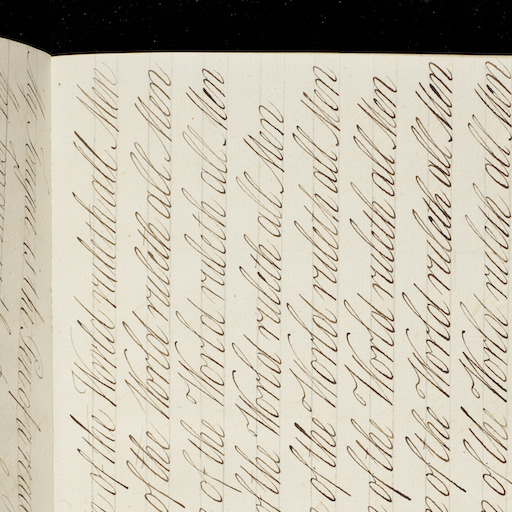 of the World ruleth all Men
of the World ruleth all Men
of the World ruleth all Men
of the World ruleth all Men
of the World ruleth all Men
of the World ruleth all Men
of the World ruleth all Men
of the World ruleth all Men